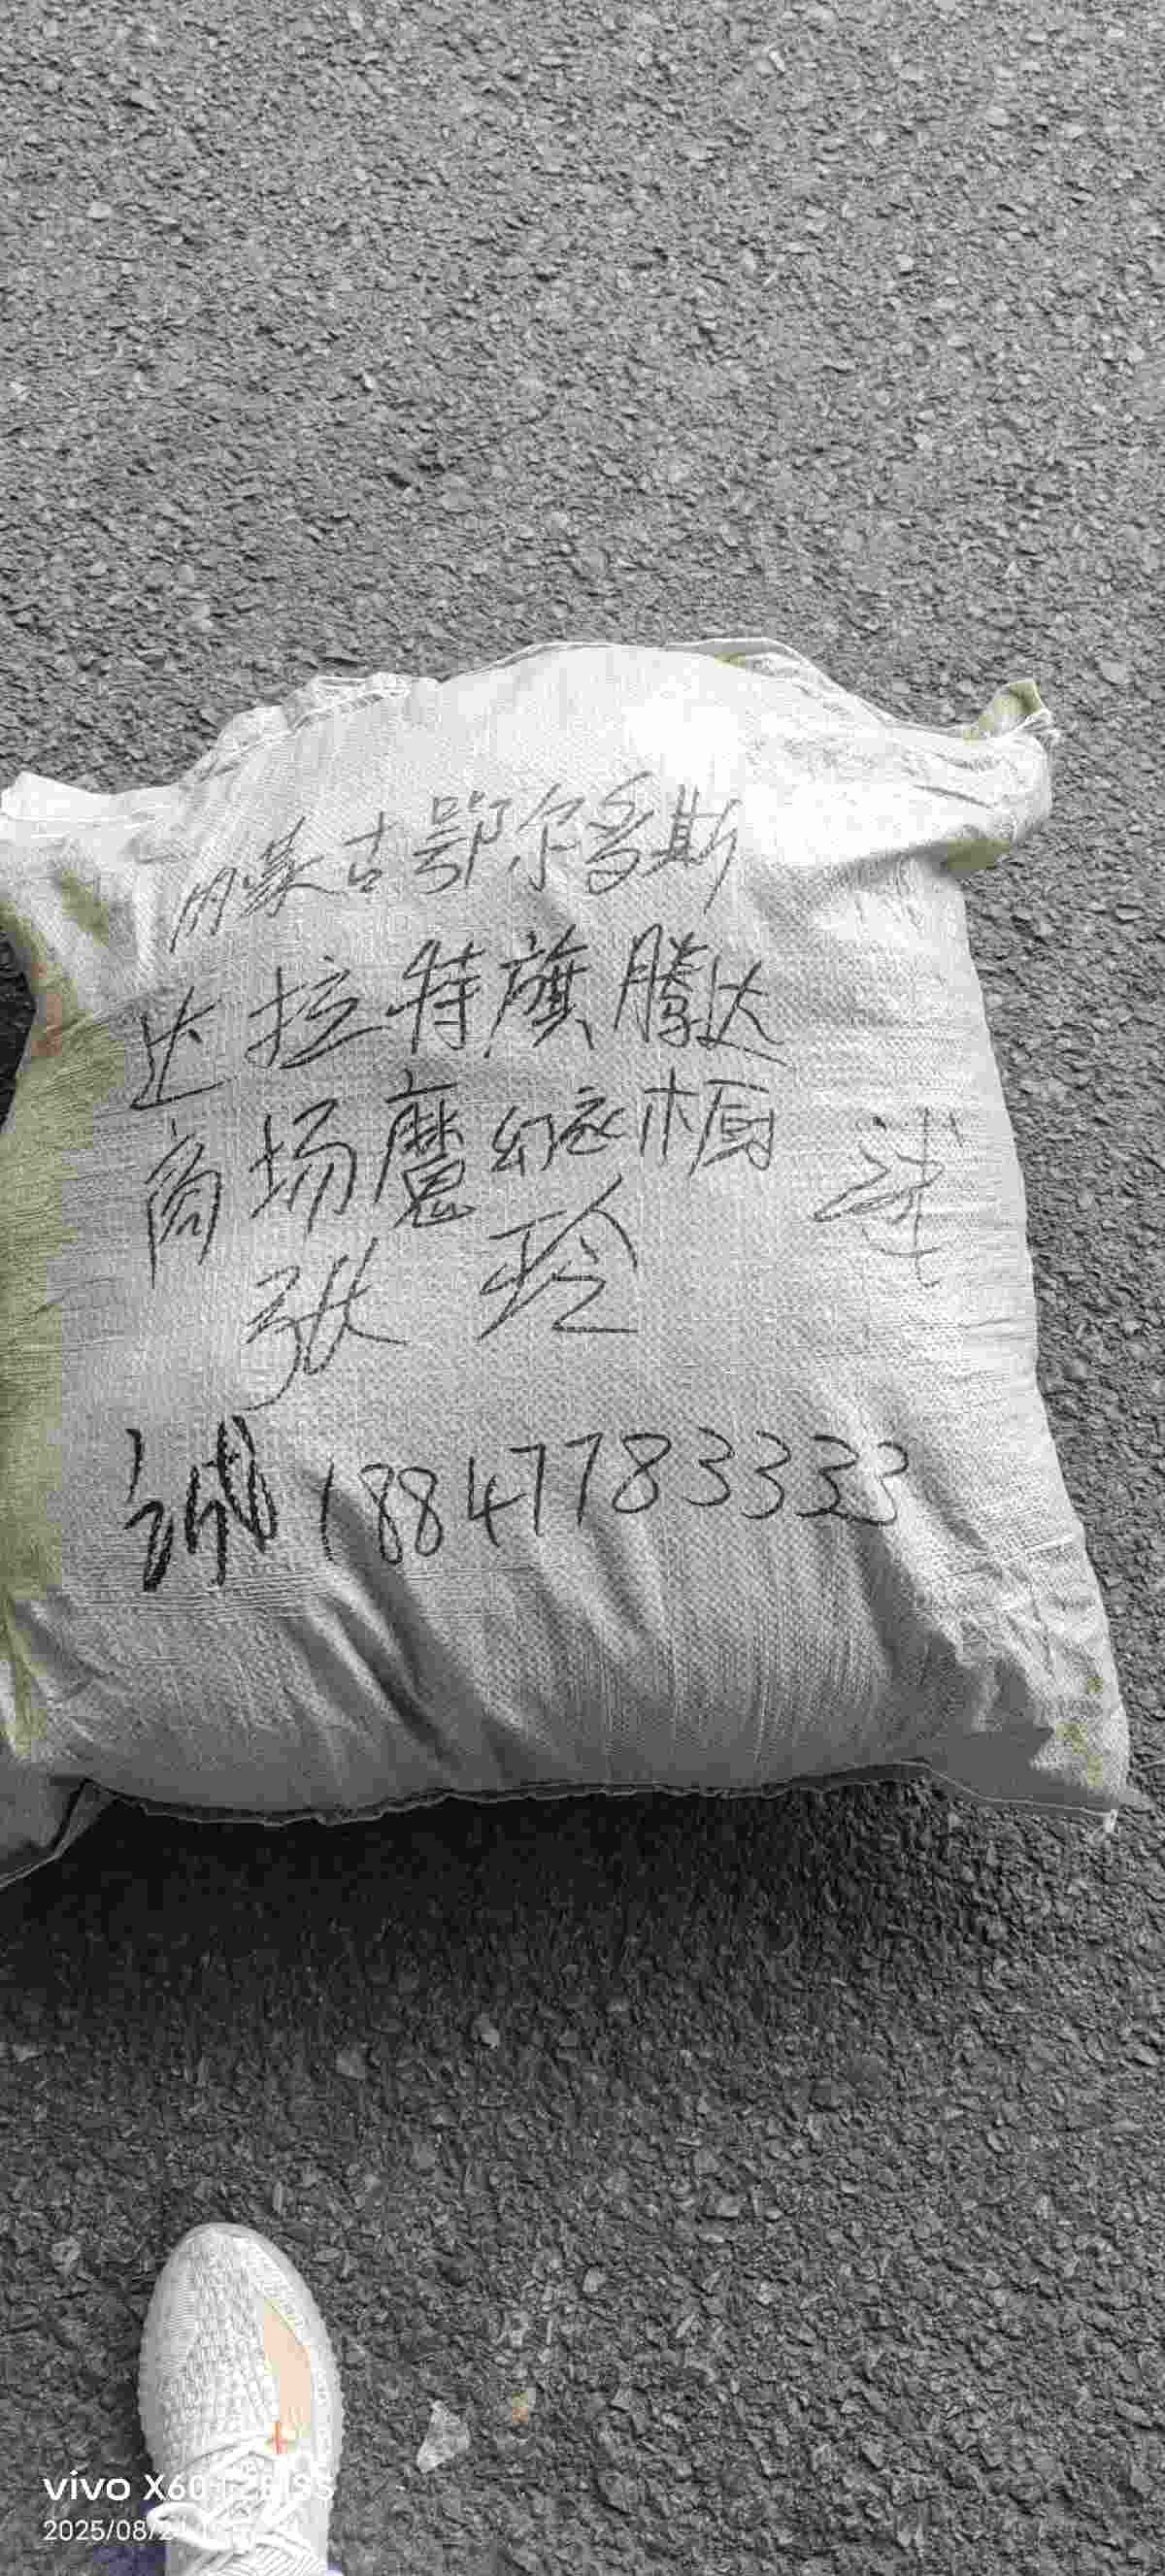 内蒙古鄂尔多斯
达拉特旗腾达
商场魔幻衣橱
张玲
诚18847783333
vivo X60
2025/08/2